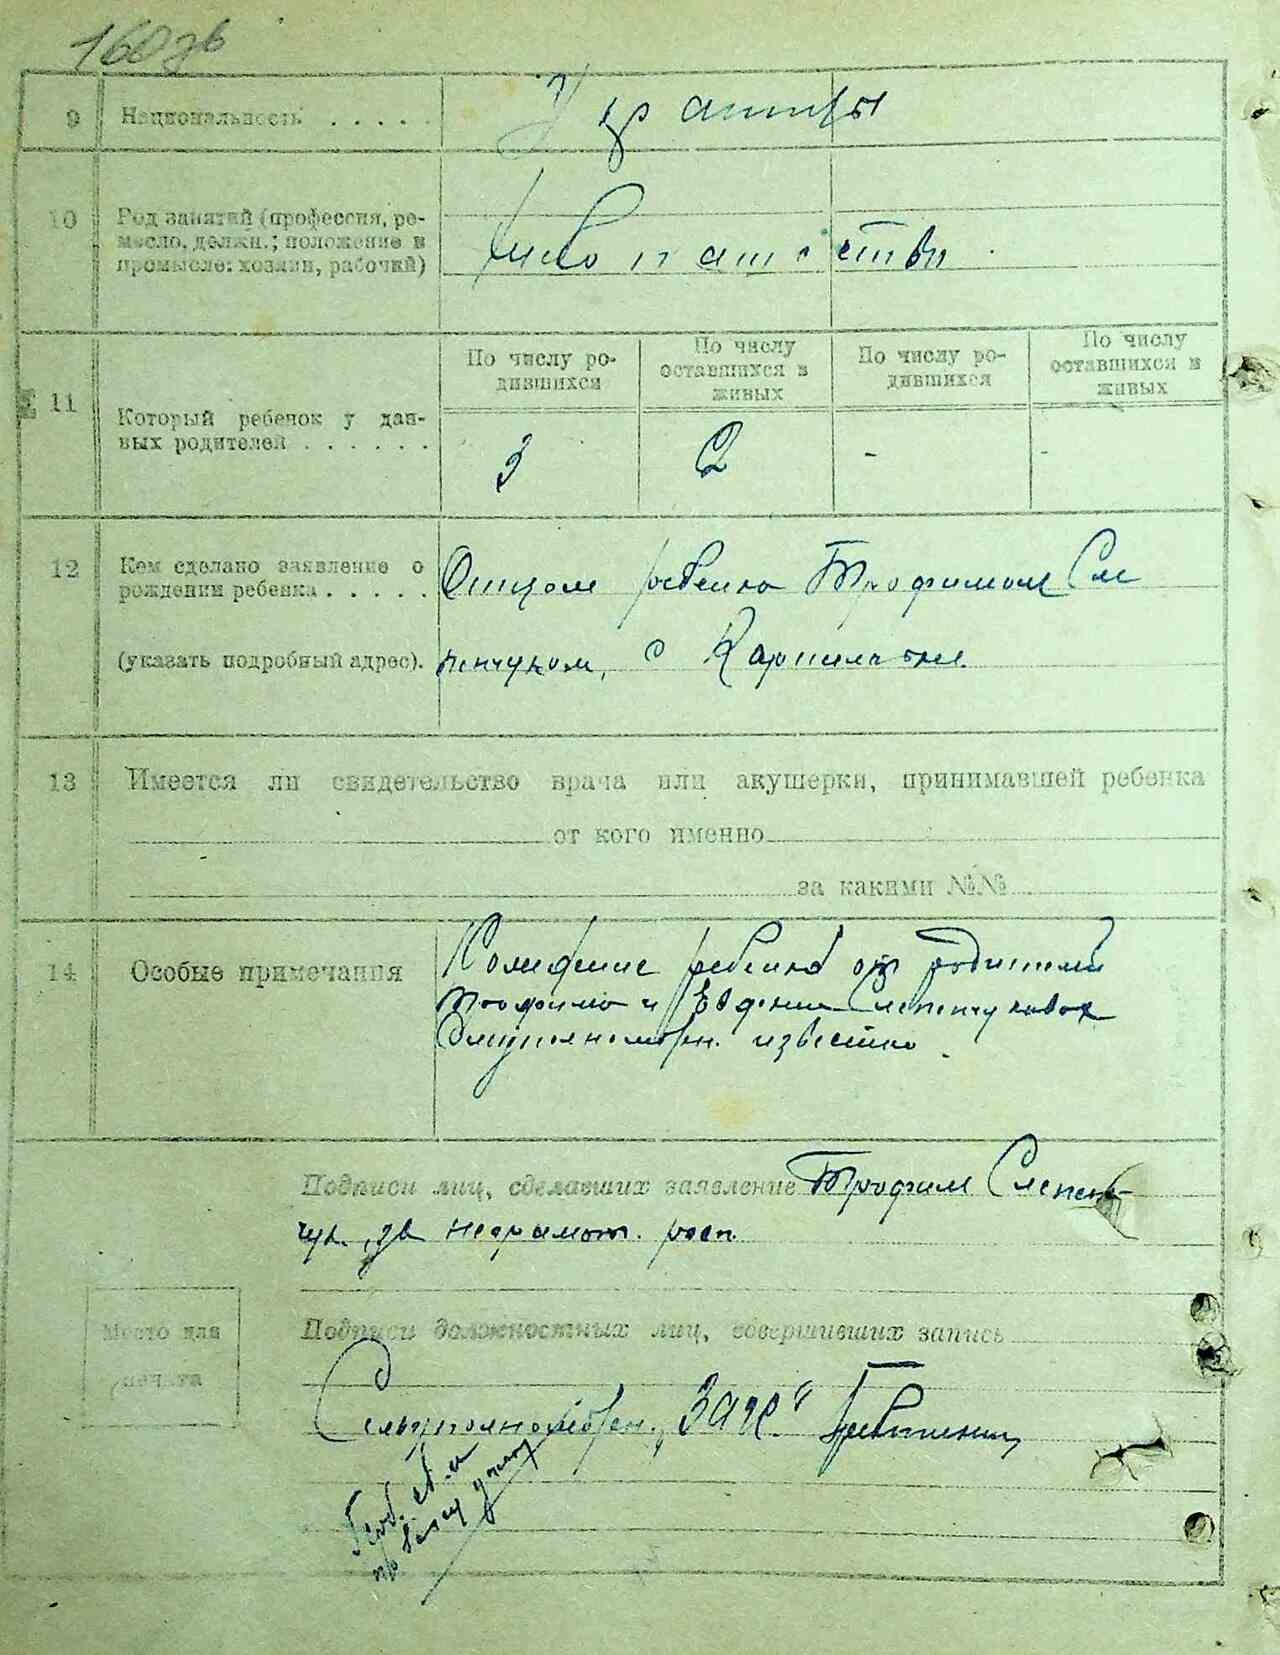 160
9 Национальность . . . . . Украинцы
10 Род занятий (профессия, ре-
месло, должн.; положение в
промысле: хозяин, рабочий)
По числу ро-
дившихся
По числу
оставшихся в
живых
По числу ро-
дившихся
По числу
оставшихся в
живых
11 Который ребенок у дан-
ных родителей . . . . . . 3 2 - -
12 Кем сделано заявление о
рождении ребенка . . . . . Отцом ребенка Трофимом Сле
(указать подробный адрес). пенчуком, с
13 Имеется ли свидетельство врача или акушерки, принимавшей ребенка
от кого именно
за какими №№
14 Особые примечания ребенка от родителей
Трофима и Евгении Слепенчуковых
известно
Подписи лиц, сделавших заявление Трофим Слепен-
чук, за неграмотн. росп.
Подписи должностных лиц, совершивших запись
Место для
печати
Сельуполномочен. „ЗАГС"